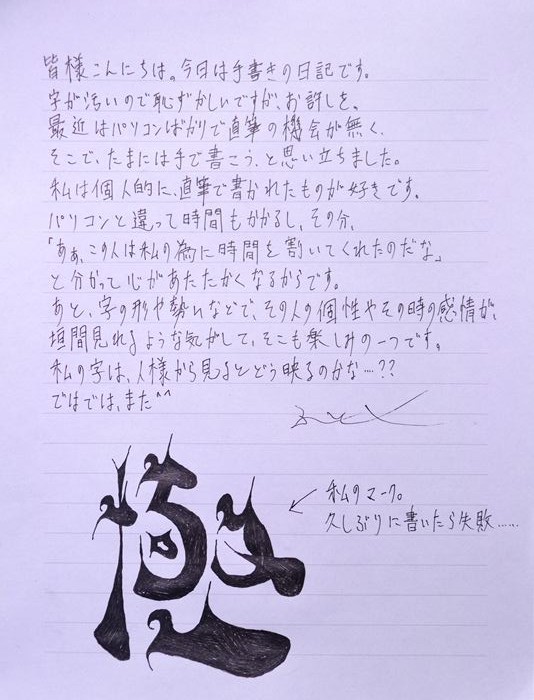 皆様こんにちは。今日は手書きの日記です。
字が汚いので恥ずかしいですが、お許しを。
最近はパソコンばかりで直筆の機会が無く、
そこで、たまには手で書こう、と思い立ちました。
私は個人的に、直筆で書かれたものが好きです。
パソコンと違って時間もかかるし、その分、
「あぁ、この人は私の為に時間を割いてくれたのだな」
と分かって心があたたかくなるからです。
あと、字の形や勢いなどで、その人の個性やその時の感情が、
垣間見れるような気がして、そこも楽しみの一つです。
私の字は、人様から見るとどう映るのかな…??
ではでは、また^^
私のマーク。
久しぶりに書いたら失敗……